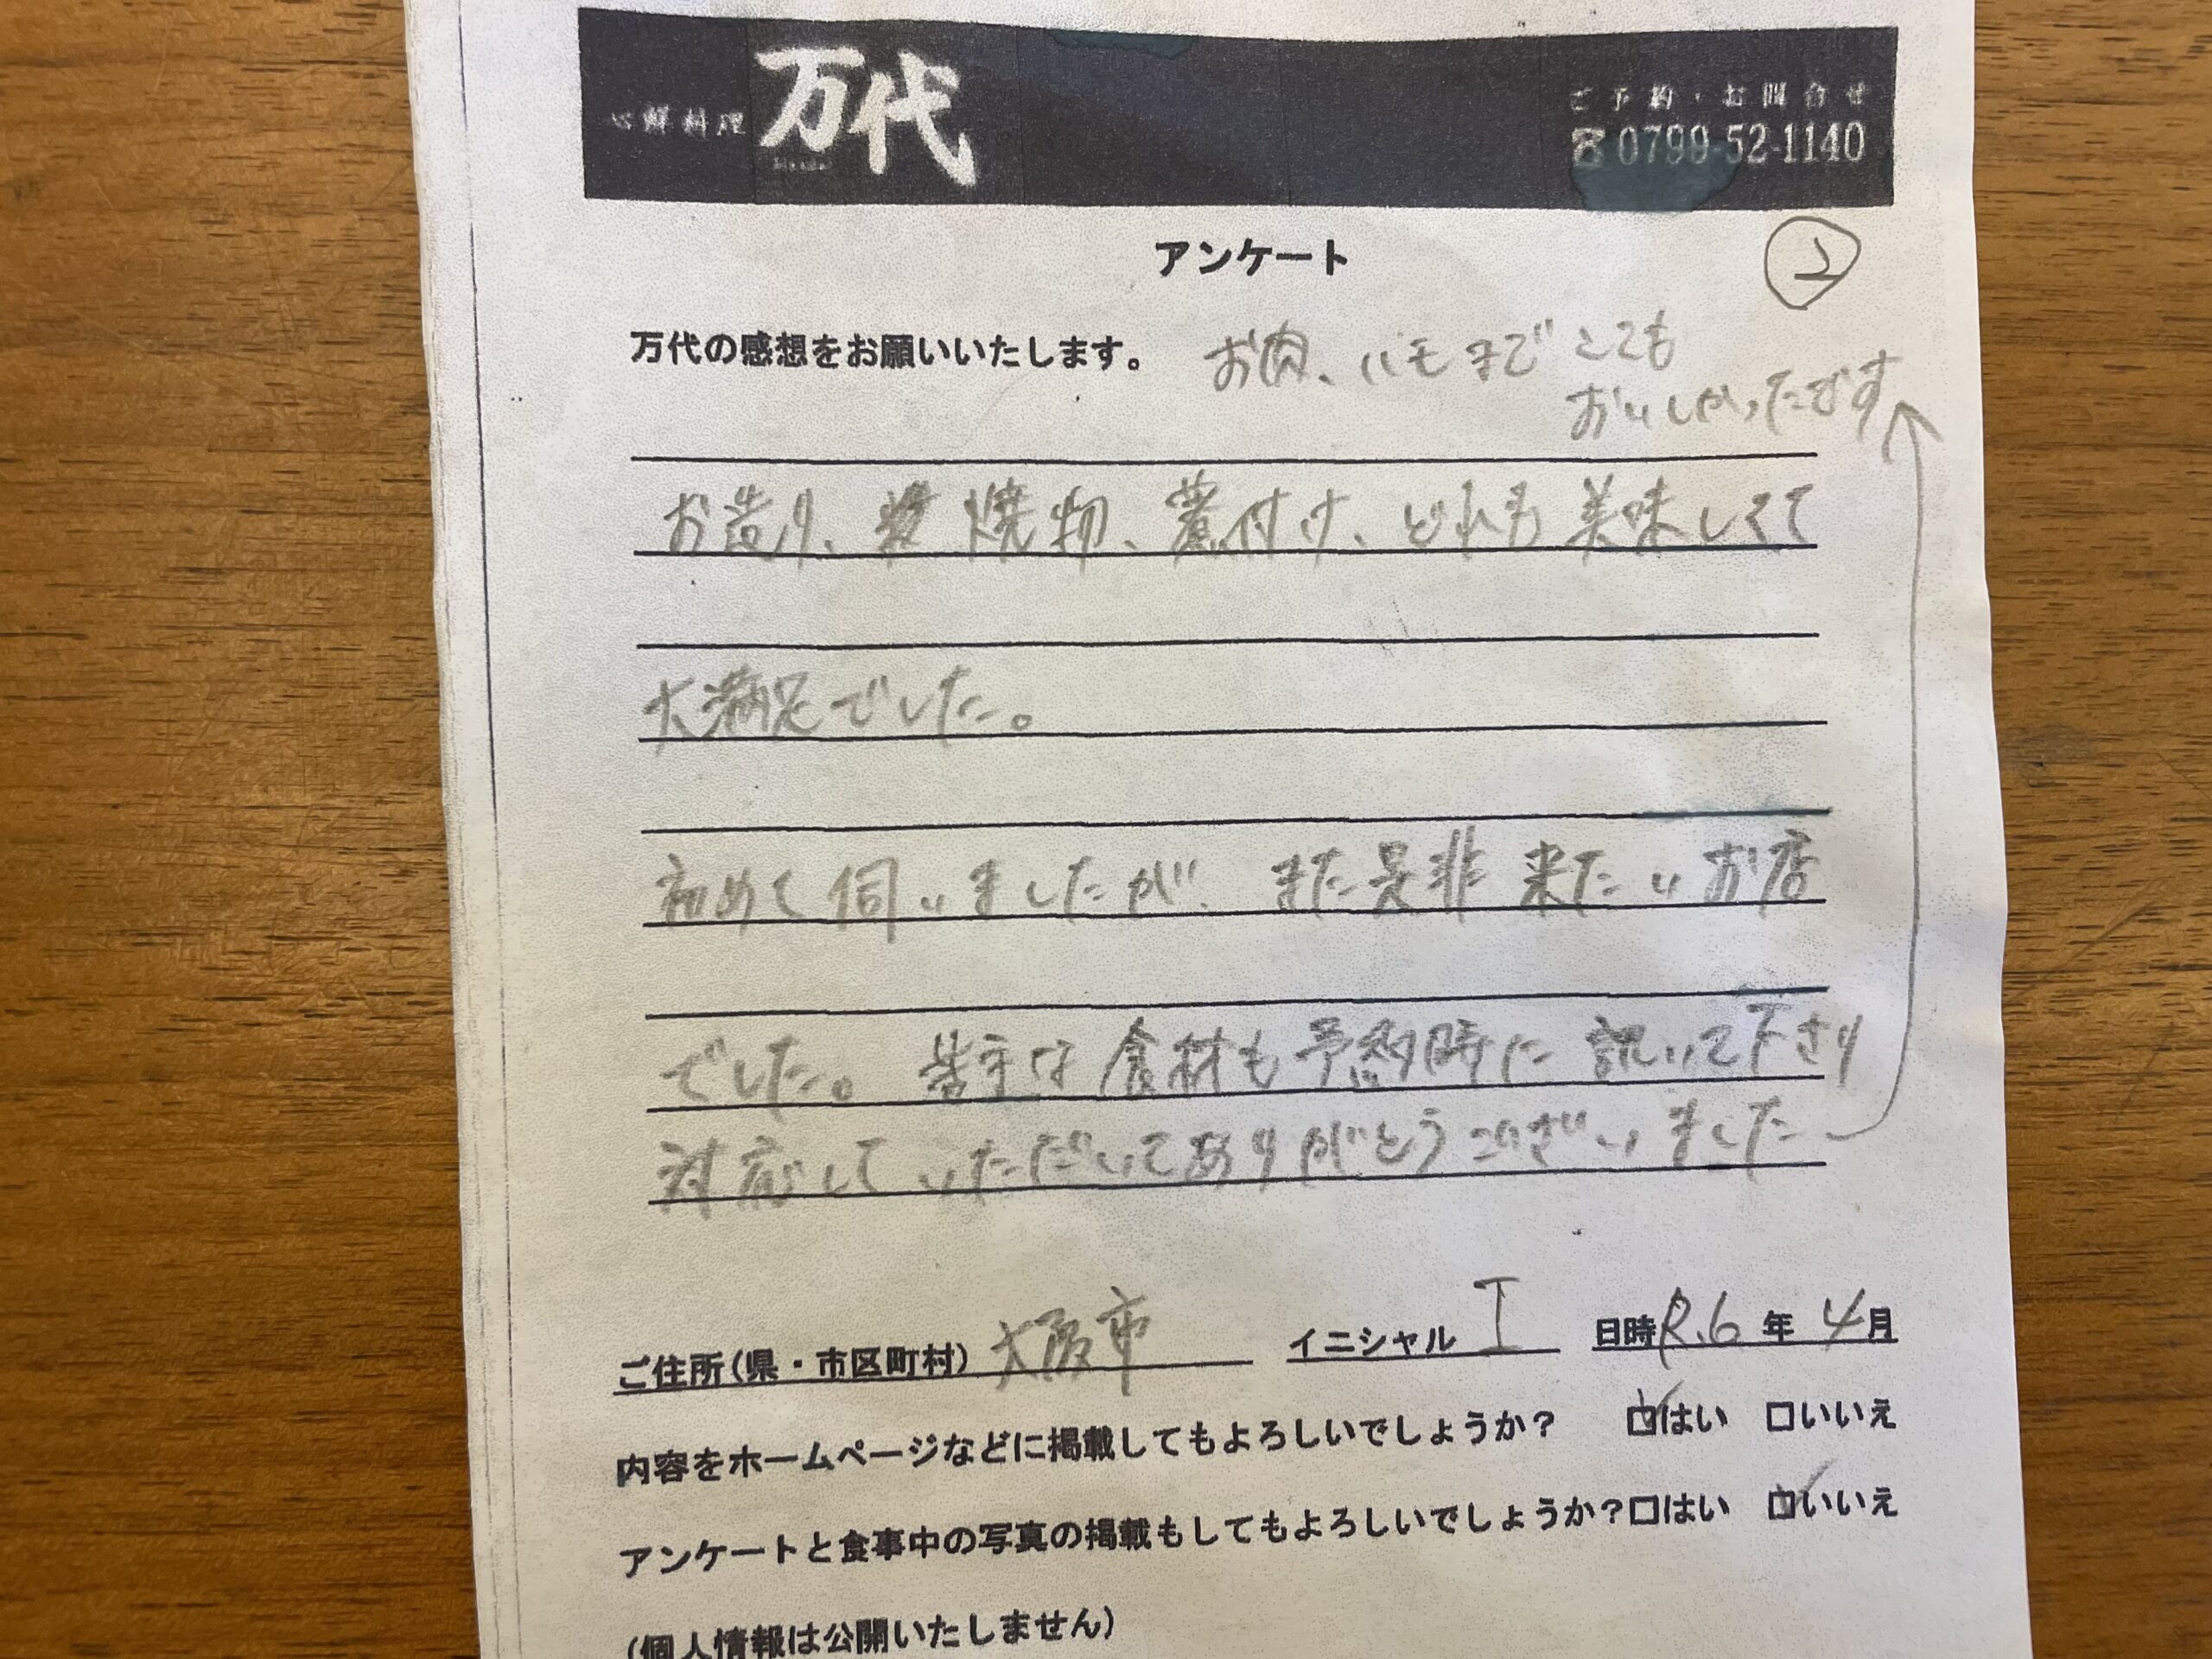 心鮮料理 万代
ご予約・お問合せ
☎0799-52-1140
アンケート
②
万代の感想をお願いいたします。
お肉、ハモまでとても
おいしかったです
お造り、焼物、煮付け、どれも美味しくて
大満足でした。
初めて伺いましたが、また是非来たいお店
でした。苦手な食材も予約時に訊いて下さり
対応していただいてありがとうございました
ご住所(県・市区町村) 大阪市 イニシャル I 日時 R.6 年 4月
内容をホームページなどに掲載してもよろしいでしょうか? ☑はい □いいえ
アンケートと食事中の写真の掲載もしてもよろしいでしょうか?□はい ☑いいえ
(個人情報は公開いたしません)